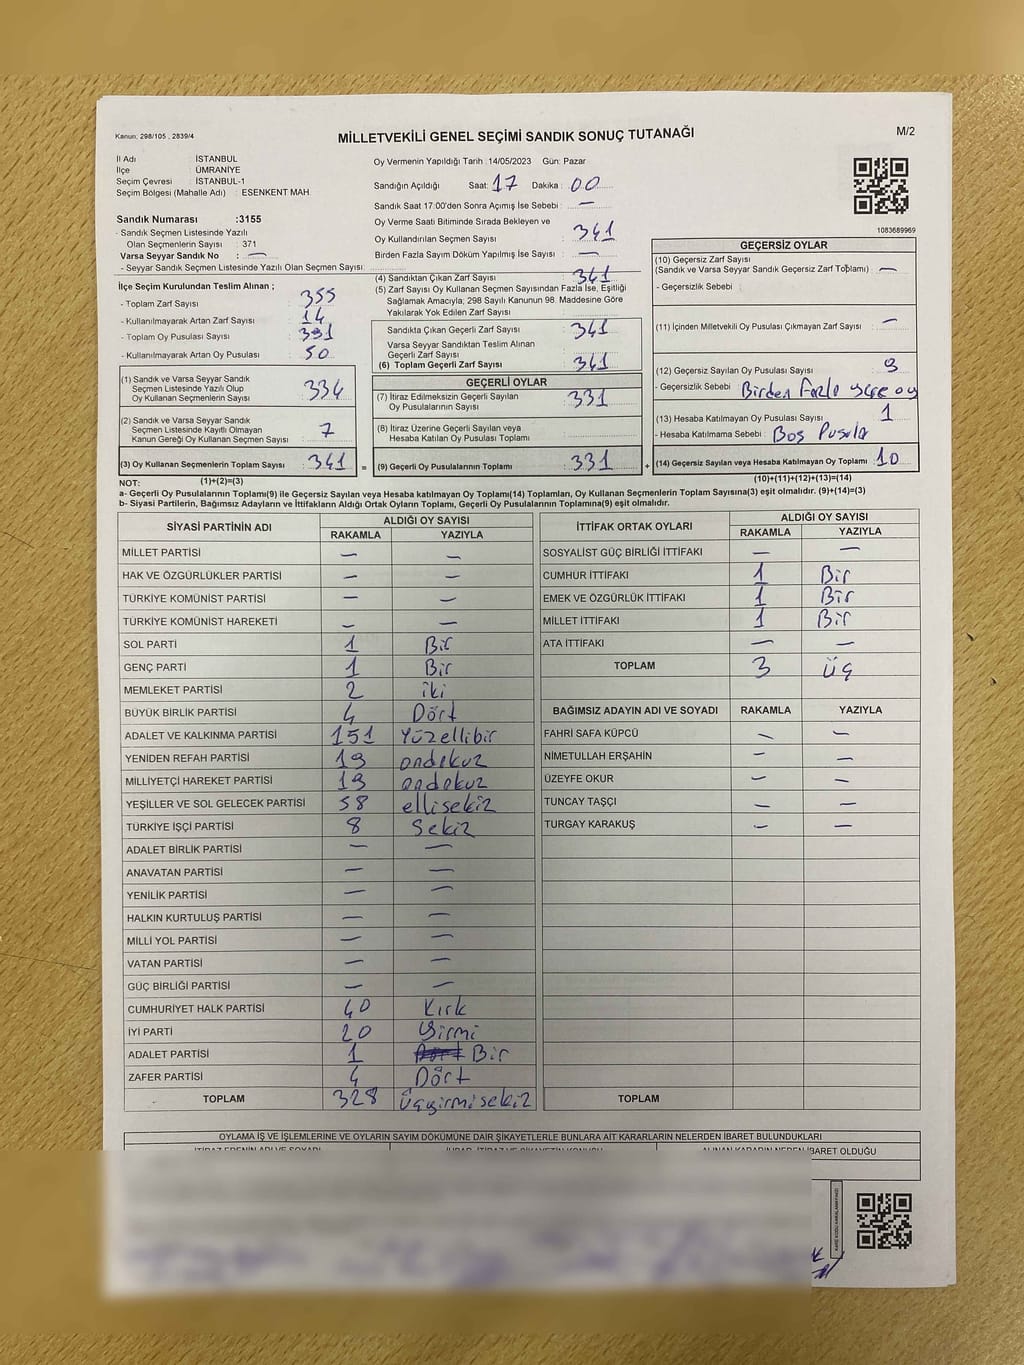 Kanun: 298/105 , 2839/4
MİLLETVEKİLİ GENEL SEÇİMİ SANDIK SONUÇ TUTANAĞI
M/2
İl Adı : İSTANBUL
İlçe : ÜMRANİYE
Seçim Çevresi : İSTANBUL-1
Seçim Bölgesi (Mahalle Adı) : ESENKENT MAH.
Sandık Numarası :3155
- Sandık Seçmen Listesinde Yazılı
Olan Seçmenlerin Sayısı : 371
Varsa Seyyar Sandık No : —
- Seyyar Sandık Seçmen Listesinde Yazılı Olan Seçmen Sayısı:
İlçe Seçim Kurulundan Teslim Alınan ;
- Toplam Zarf Sayısı : 355
- Kullanılmayarak Artan Zarf Sayısı : 14
- Toplam Oy Pusulası Sayısı : 391
- Kullanılmayarak Artan Oy Pusulası : 50
(1) Sandık ve Varsa Seyyar Sandık
Seçmen Listesinde Yazılı Olup
Oy Kullanan Seçmenlerin Sayısı : 334
(2) Sandık ve Varsa Seyyar Sandık
Seçmen Listesinde Kayıtlı Olmayan
Kanun Gereği Oy Kullanan Seçmen Sayısı : 7
(3) Oy Kullanan Seçmenlerin Toplam Sayısı : 341 =
Oy Vermenin Yapıldığı Tarih :14/05/2023 Gün: Pazar
Sandığın Açıldığı Saat: 17 Dakika : 00
Sandık Saat 17:00'den Sonra Açımış İse Sebebi : —
Oy Verme Saati Bitiminde Sırada Bekleyen ve
Oy Kullandırılan Seçmen Sayısı : 341
Birden Fazla Sayım Döküm Yapılmış İse Sayısı : —
(4) Sandıktan Çıkan Zarf Sayısı : 341
(5) Zarf Sayısı Oy Kullanan Seçmen Sayısından Fazla İse, Eşitliği
Sağlamak Amacıyla; 298 Sayılı Kanunun 98. Maddesine Göre
Yakılarak Yok Edilen Zarf Sayısı :
Sandıkta Çıkan Geçerli Zarf Sayısı : 341
Varsa Seyyar Sandıktan Teslim Alınan
Geçerli Zarf Sayısı :
(6) Toplam Geçerli Zarf Sayısı : 341
GEÇERLİ OYLAR
(7) İtiraz Edilmeksizin Geçerli Sayılan
Oy Pusulalarının Sayısı : 331
(8) İtiraz Üzerine Geçerli Sayılan veya
Hesaba Katılan Oy Pusulası Toplamı :
(9) Geçerli Oy Pusulalarının Toplamı : 331 +
1083689969
GEÇERSİZ OYLAR
(10) Geçersiz Zarf Sayısı
(Sandık ve Varsa Seyyar Sandık Geçersiz Zarf Toplamı) : —
- Geçersizlik Sebebi :
(11) İçinden Milletvekili Oy Pusulası Çıkmayan Zarf Sayısı : —
(12) Geçersiz Sayılan Oy Pusulası Sayısı : 9
- Geçersizlik Sebebi : Birden Fazla yere oy
(13) Hesaba Katılmayan Oy Pusulası Sayısı : 1
- Hesaba Katılmama Sebebi : Boş Pusula
(14) Geçersiz Sayılan veya Hesaba Katılmayan Oy Toplamı : 10
NOT: (1)+(2)=(3) (10)+(11)+(12)+(13)=(14)
a- Geçerli Oy Pusulalarının Toplamı(9) ile Geçersiz Sayılan veya Hesaba katılmayan Oy Toplamı(14) Toplamları, Oy Kullanan Seçmenlerin Toplam Sayısına(3) eşit olmalıdır. (9)+(14)=(3)
b- Siyasi Partilerin, Bağımsız Adayların ve İttifakların Aldığı Ortak Oyların Toplamı, Geçerli Oy Pusulalarının Toplamına(9) eşit olmalıdır.
SİYASİ PARTİNİN ADI ALDIĞI OY SAYISI
RAKAMLA YAZIYLA
MİLLET PARTİSİ — —
HAK VE ÖZGÜRLÜKLER PARTİSİ — —
TÜRKİYE KOMÜNİST PARTİSİ — —
TÜRKİYE KOMÜNİST HAREKETİ — —
SOL PARTİ 1 Bir
GENÇ PARTİ 1 Bir
MEMLEKET PARTİSİ 2 iki
BÜYÜK BİRLİK PARTİSİ 4 Dört
ADALET VE KALKINMA PARTİSİ 151 Yüzellibir
YENİDEN REFAH PARTİSİ 19 ondokuz
MİLLİYETÇİ HAREKET PARTİSİ 19 ondokuz
YEŞİLLER VE SOL GELECEK PARTİSİ 58 ellisekiz
TÜRKİYE İŞÇİ PARTİSİ 8 Sekiz
ADALET BİRLİK PARTİSİ — —
ANAVATAN PARTİSİ — —
YENİLİK PARTİSİ — —
HALKIN KURTULUŞ PARTİSİ — —
MİLLİ YOL PARTİSİ — —
VATAN PARTİSİ — —
GÜÇ BİRLİĞİ PARTİSİ — —
CUMHURİYET HALK PARTİSİ 40 Kırk
İYİ PARTİ 20 Yirmi
ADALET PARTİSİ 1 Bir
ZAFER PARTİSİ 4 Dört
TOPLAM 328 üçyirmisekiz
İTTİFAK ORTAK OYLARI ALDIĞI OY SAYISI
RAKAMLA YAZIYLA
SOSYALİST GÜÇ BİRLİĞİ İTTİFAKI — —
CUMHUR İTTİFAKI 1 Bir
EMEK VE ÖZGÜRLÜK İTTİFAKI 1 Bir
MİLLET İTTİFAKI 1 Bir
ATA İTTİFAKI — —
TOPLAM 3 üç
BAĞIMSIZ ADAYIN ADI VE SOYADI RAKAMLA YAZIYLA
FAHRİ SAFA KÜPCÜ — —
NİMETULLAH ERŞAHİN — —
ÜZEYFE OKUR — —
TUNCAY TAŞÇI — —
TURGAY KARAKUŞ — —
TOPLAM
OYLAMA İŞ VE İŞLEMLERİNE VE OYLARIN SAYIM DÖKÜMÜNE DAİR ŞİKAYETLERLE BUNLARA AİT KARARLARIN NELERDEN İBARET BULUNDUKLARI
İTİRAZ EDENİN ADI VE SOYADI ALINAN KARARIN NEDEN İBARET OLDUĞU